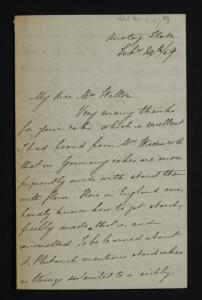 Feby 24/49
My dear Mr Walton
Very many thanks
for your cake which is excellent
I had heard from Mr
that in Germany cakes are more
frequently made with starch than
with flour. Here in England one
hardly knows how to get starch,
freshly made, that is, and
unscented. To be learned about
it Plutarch mentions starch
as things to a sickly